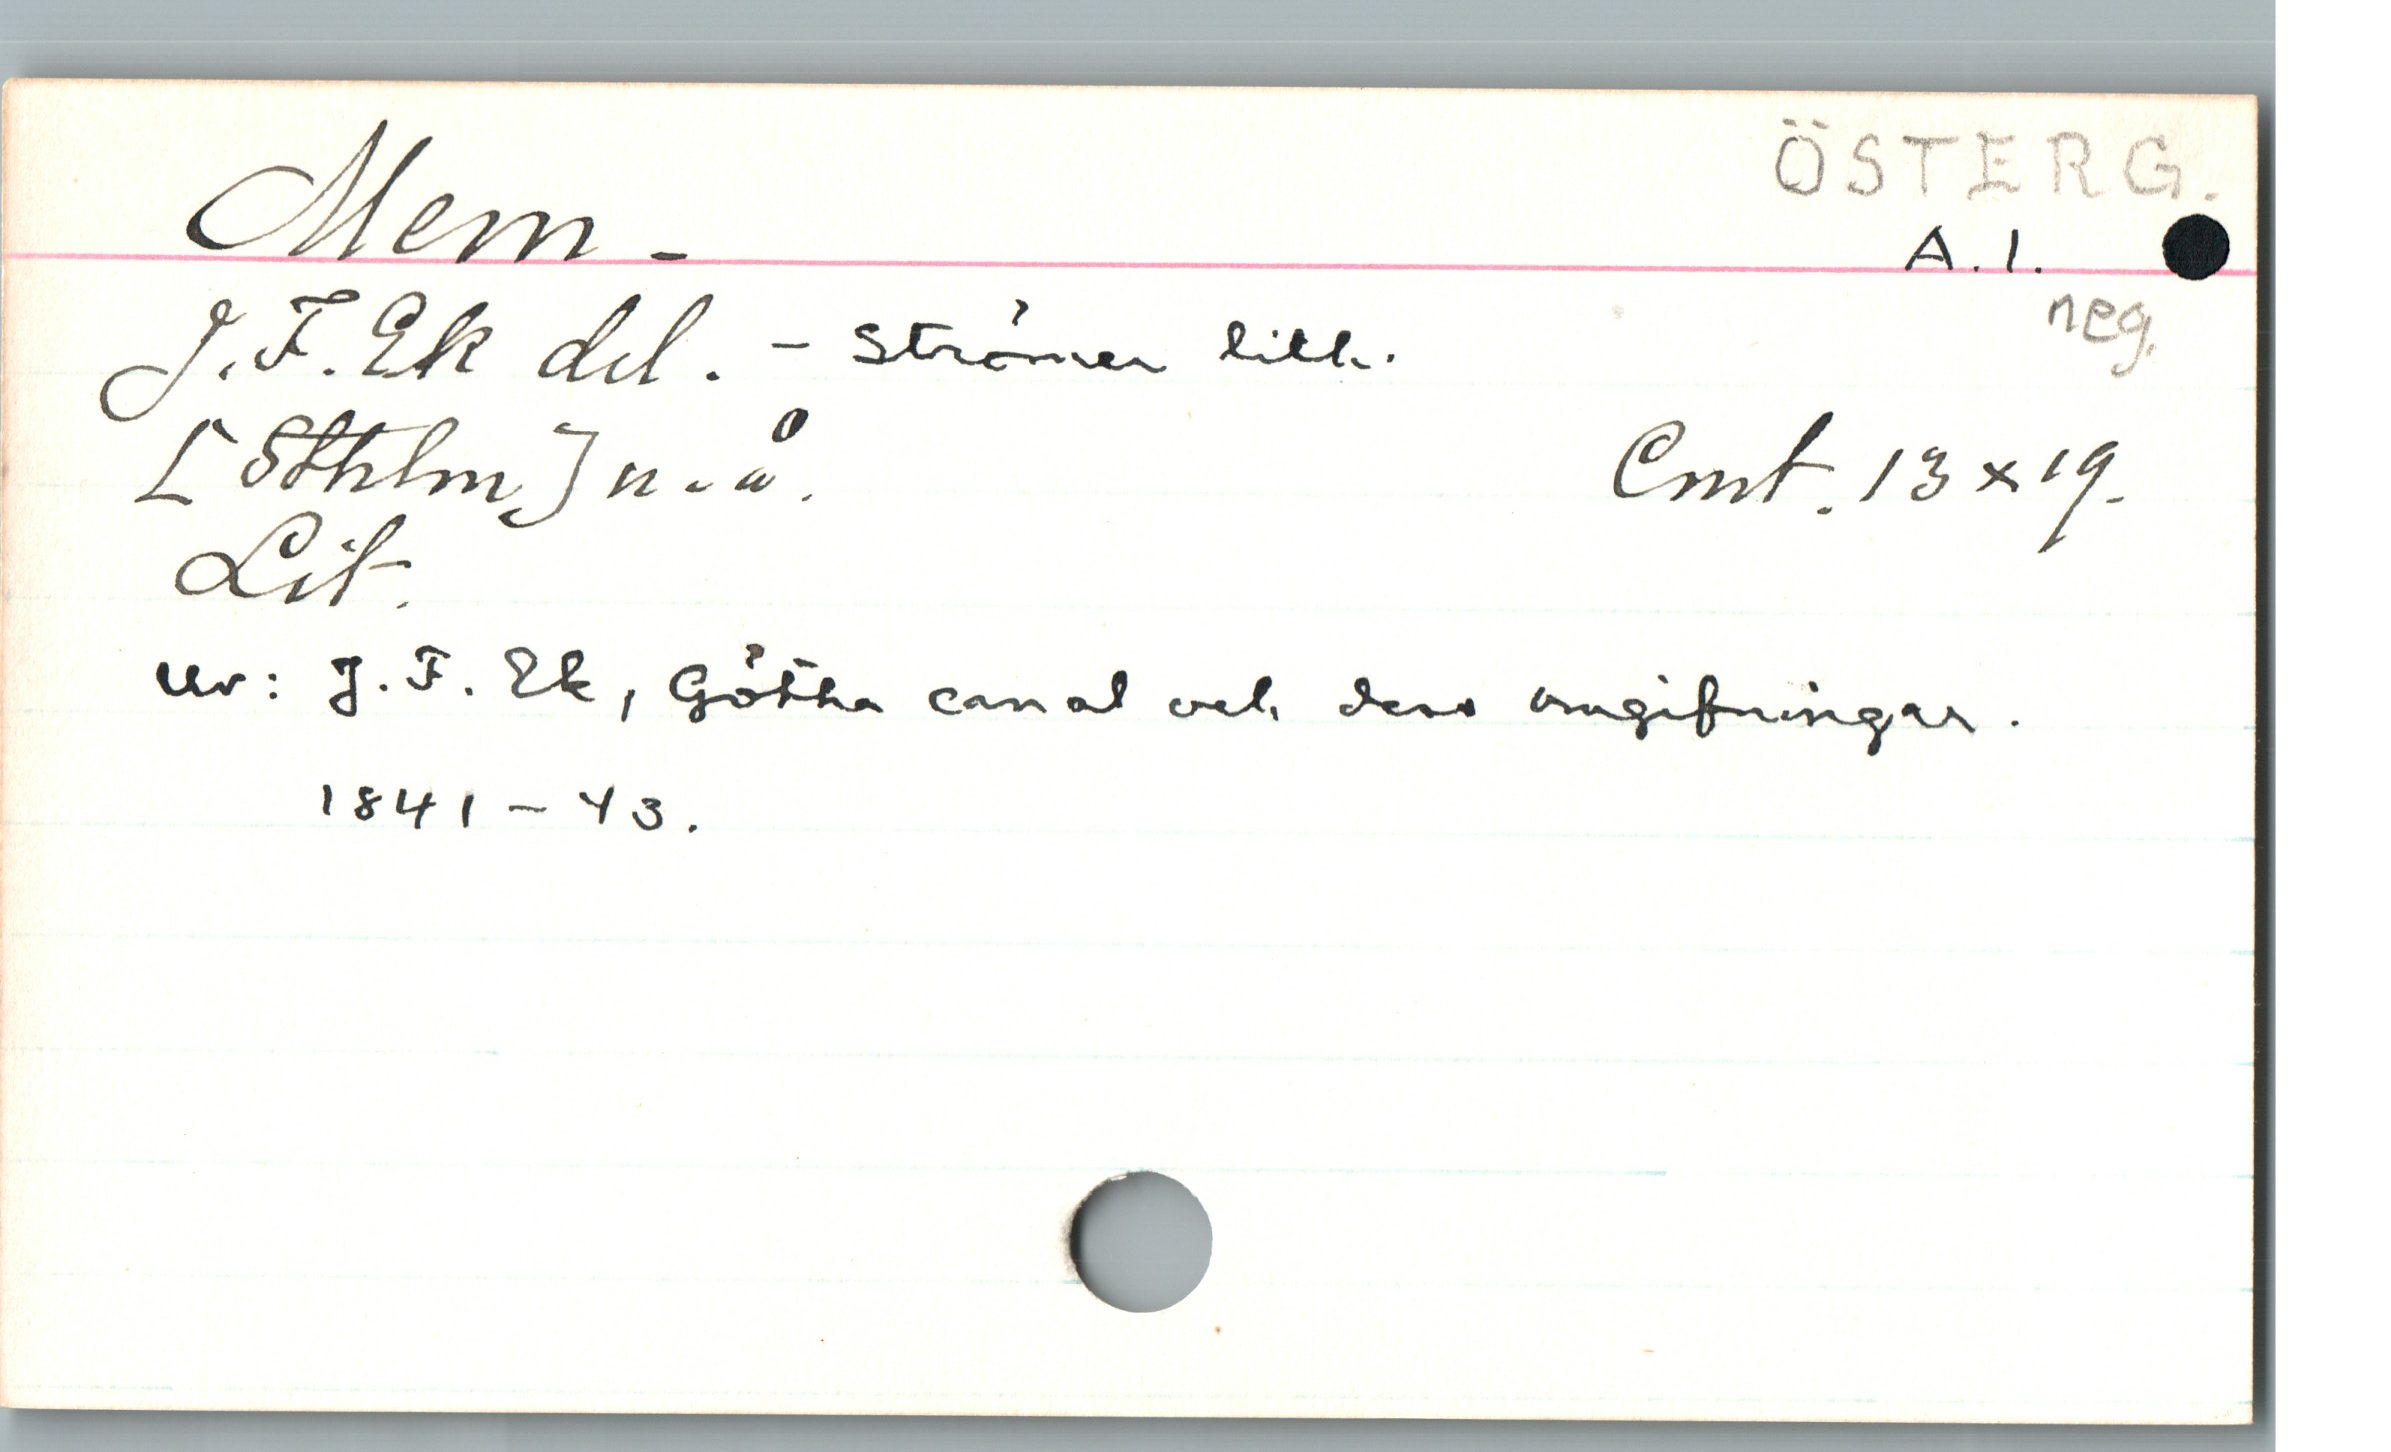 ÖSTERG.
Mem -
A. 1.
neg.
J. F. Ek del. - Strömer lith.
[Sthlm] u. å.
Cmt. 13 x 19.
Lit.
Ur: J. F. Ek, Götha canal och dess omgifningar.
1841-43.